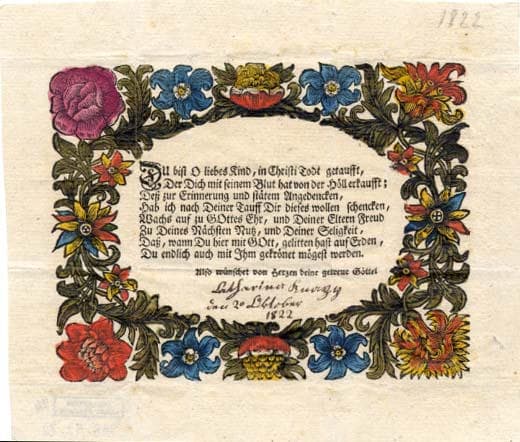 1822
DU bist O liebes Kind, in Christi Todt getaufft,
Der Dich mit seinem Blut hat von der Höll erkaufft;
Deß zur Erinnerung und stätem Angedencken,
Hab ich nach Deiner Tauff Dir dieses wollen schencken,
Wachs auf zu GOttes Ehr, und Deiner Eltern Freud
Zu Deines Nächsten Nutz, und Deiner Seligkeit.
Daß, wann Du hier mit GOtt, gelitten hast auf Erden,
Du endlich auch mit Ihm gekrönet mögest werden.
Also wünschet von Herzen deine getreue Göttel
Catharina
den Oktober
1822